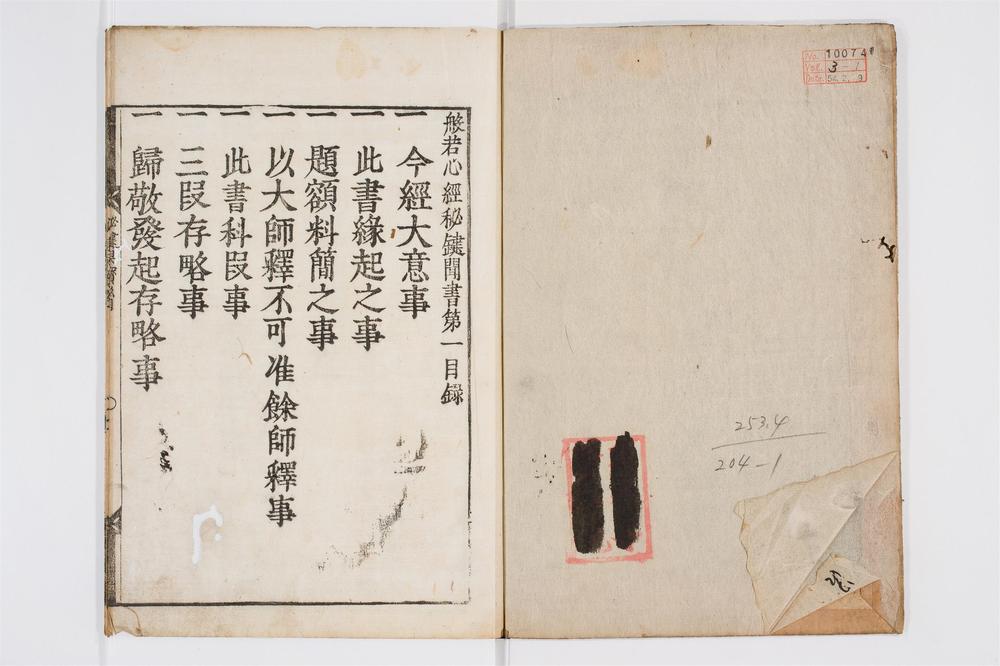 No. 10074
Vol. 3-1
Date. 52. 2. 9
253.4
204-1
般若心經秘鍵聞書第一目録
一 今經大意事
一 此書緣起之事
一 題額料簡之事
一 以大師釋不可准餘師釋事
一 此書科叚事
一 三叚存略事
一 歸敬發起存略事